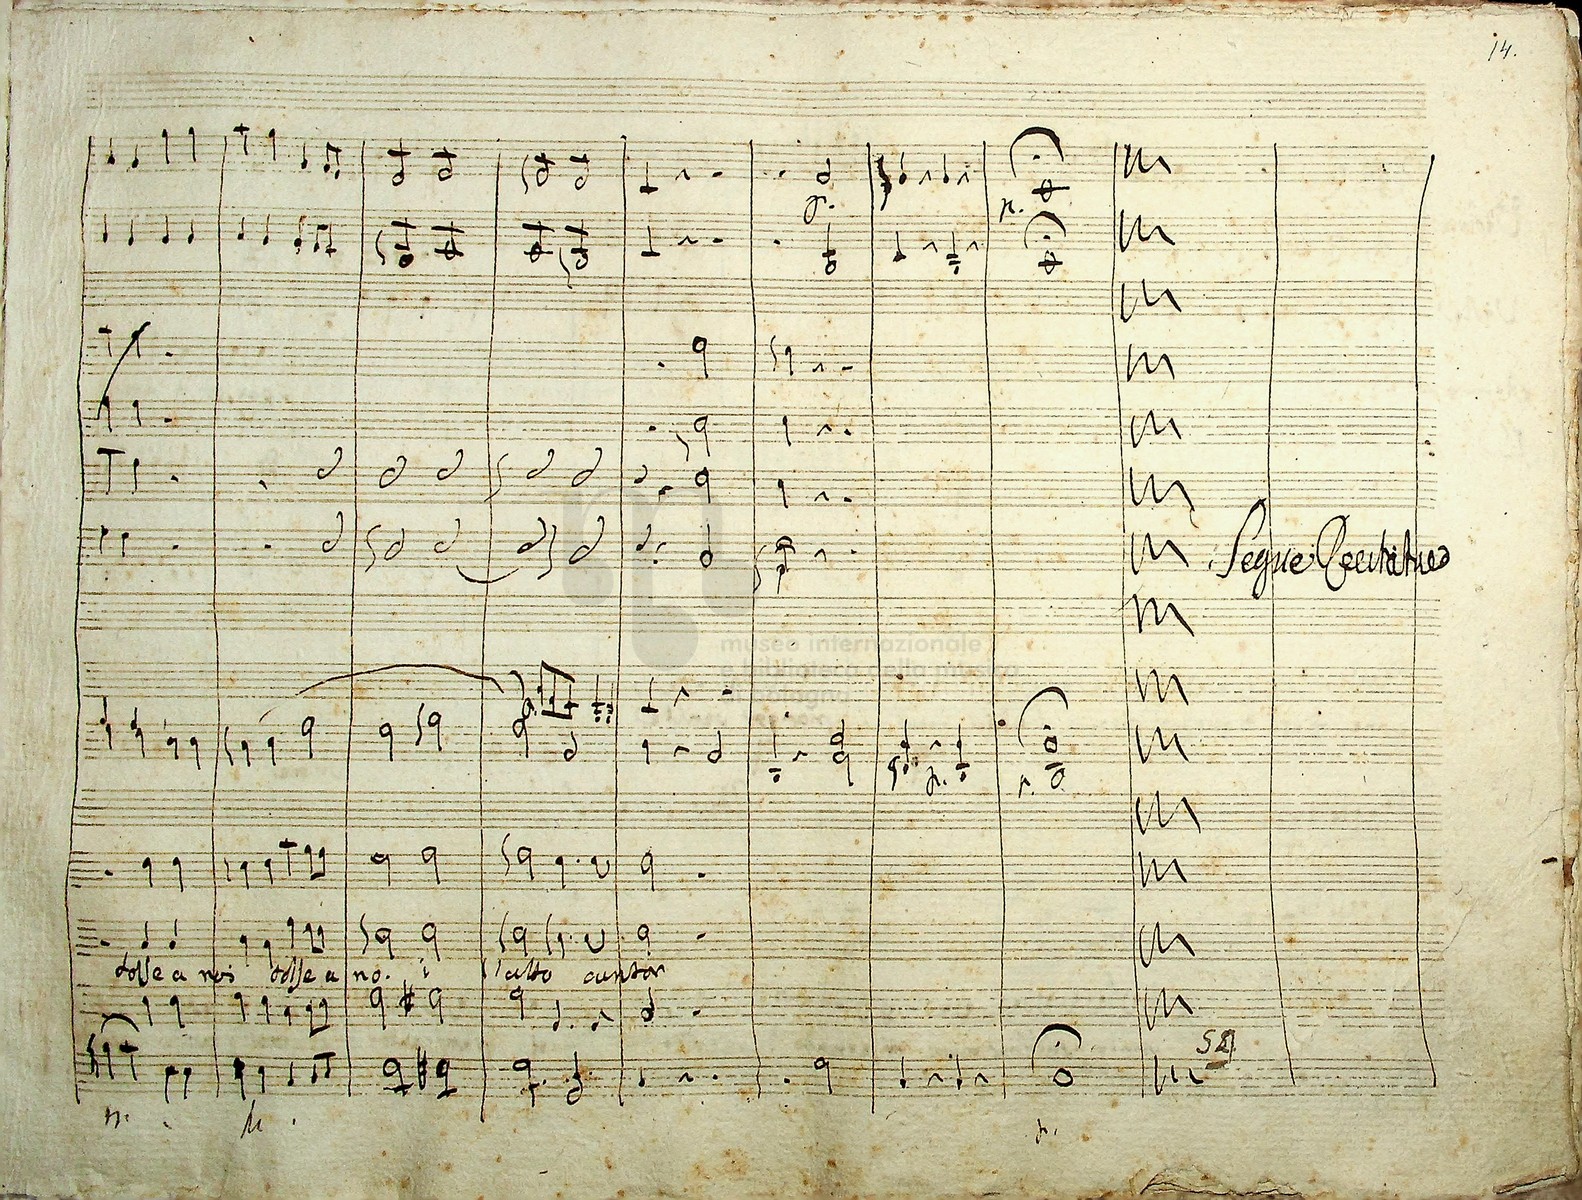 14.
p.
p.
Segue Recitativo
museo internazionale
e biblioteca della musica
di bologna
p.
p.
tolse a noi tolse a no. i l'alto cantor
52
p.